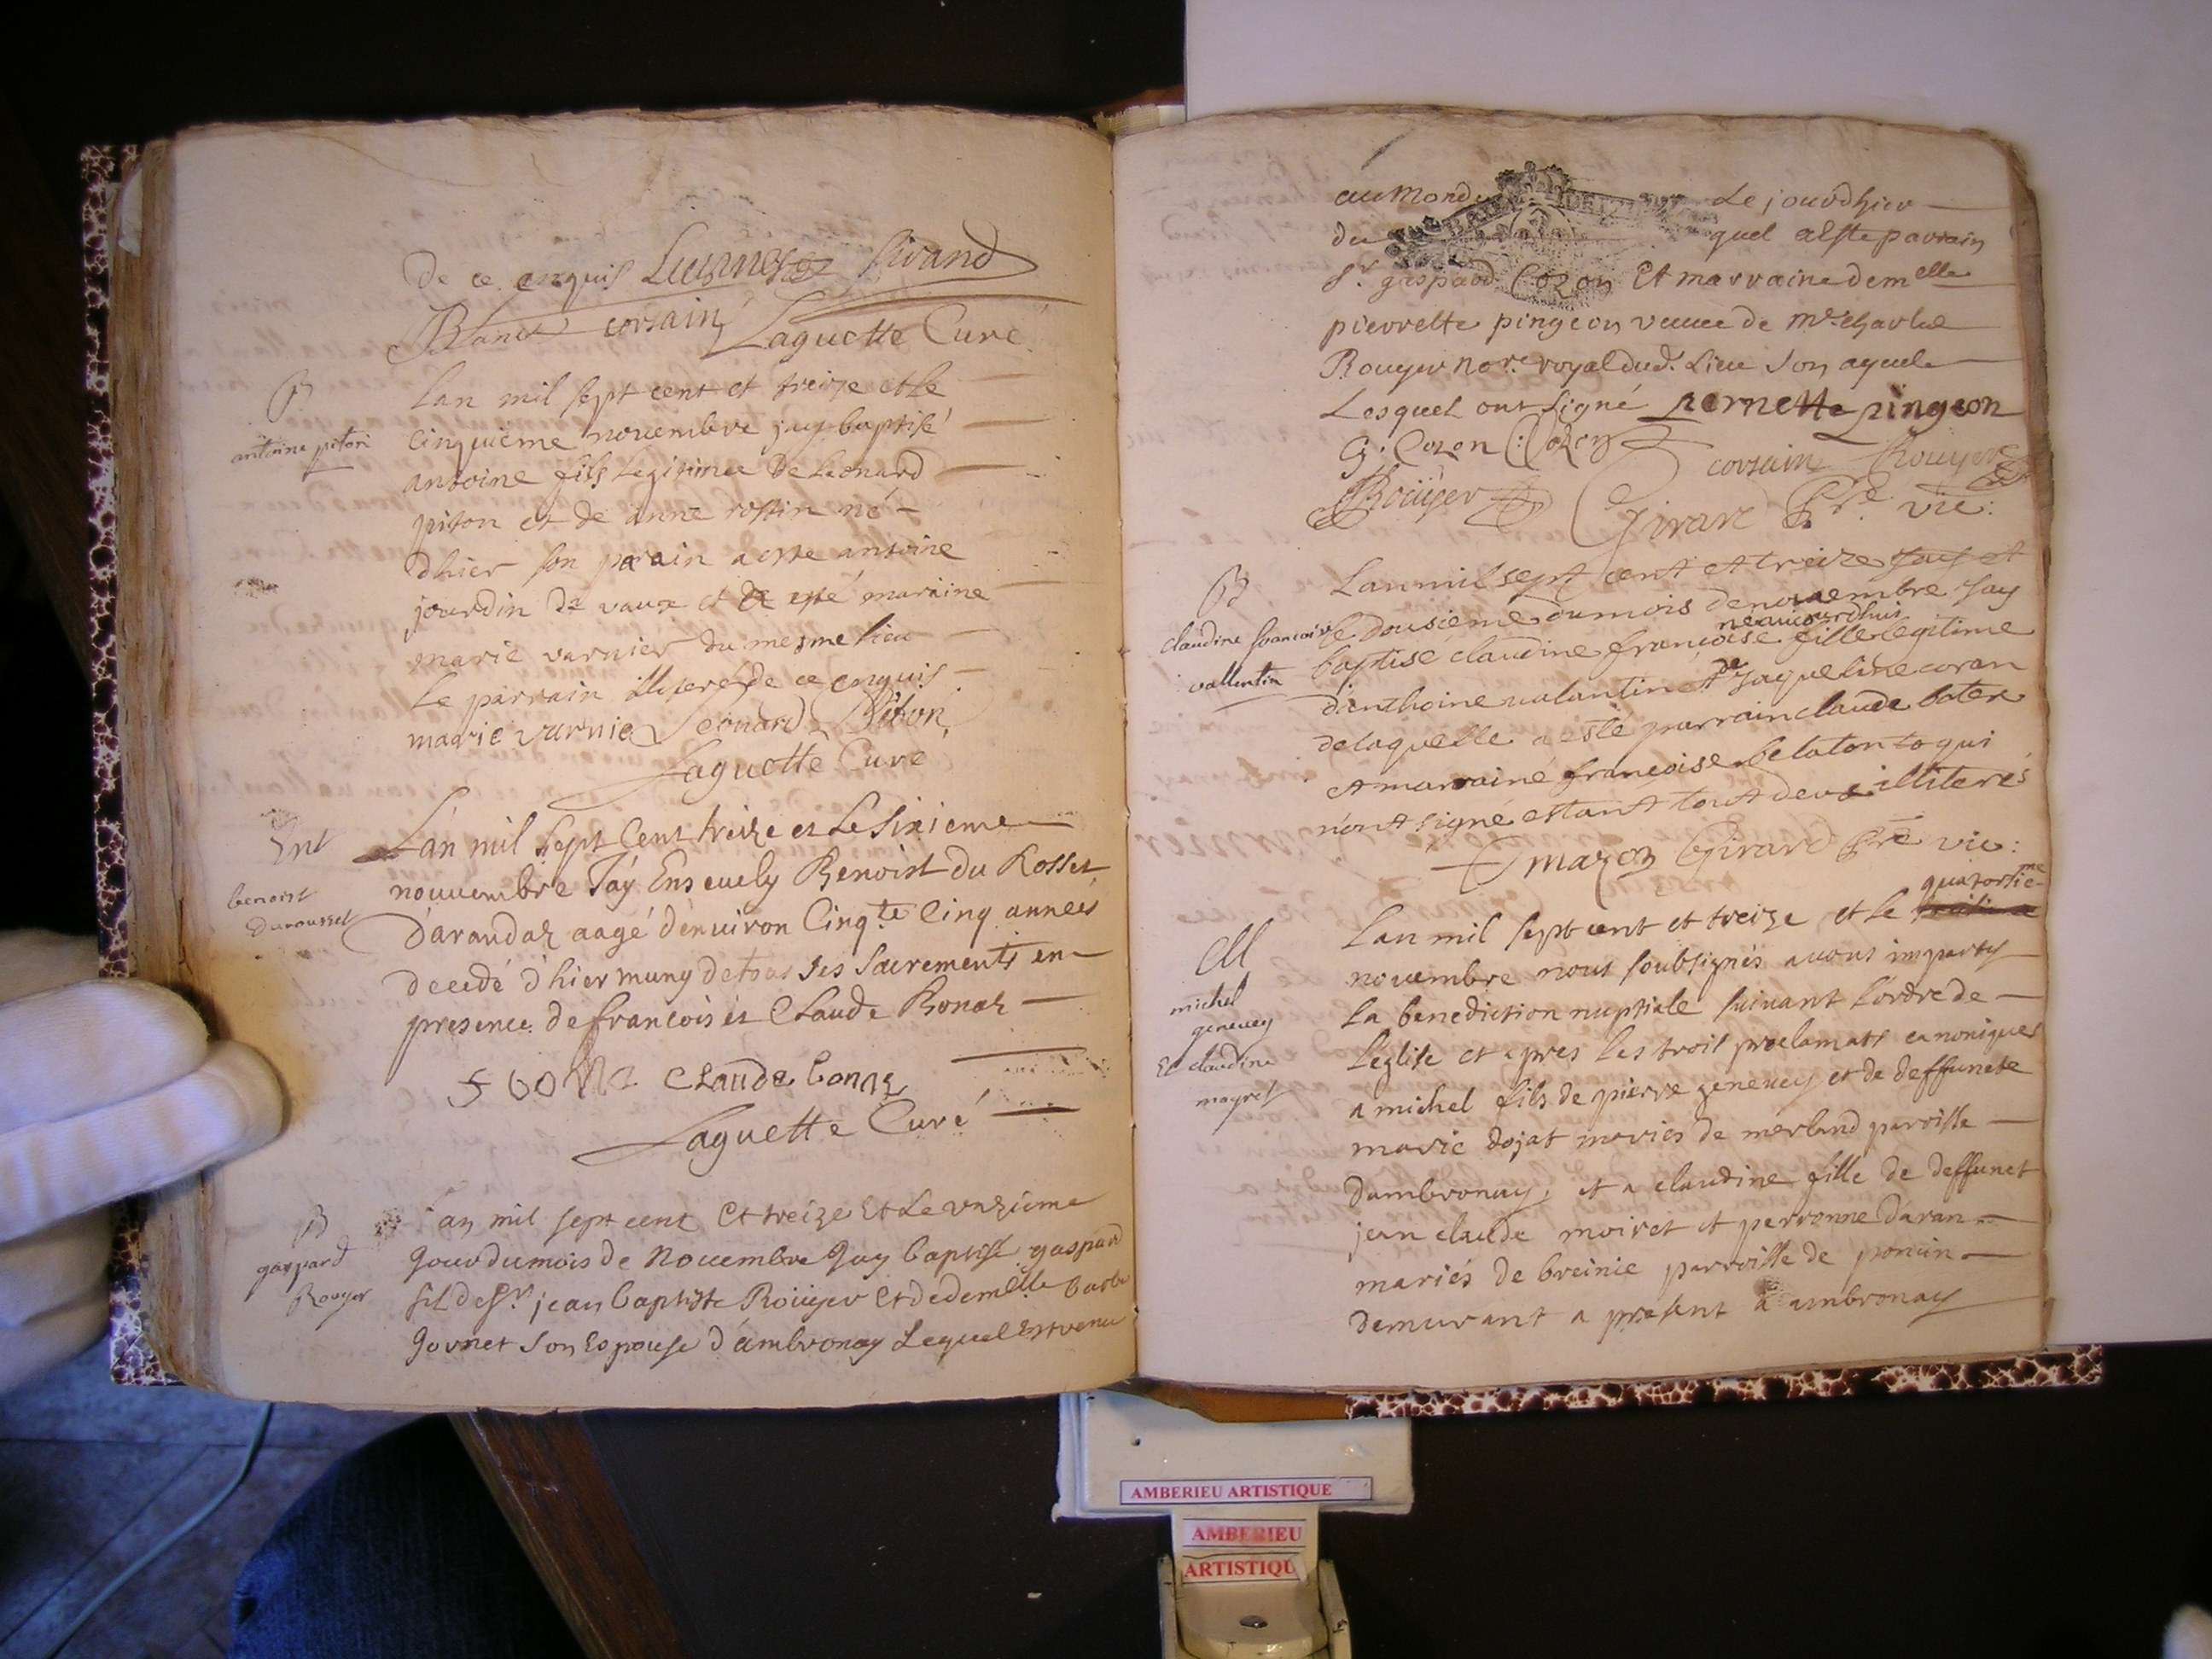 de ce enquis
Blanc corsain Laguette Curé
B
antoine piton
Lan mil sept cent et treize et le
cinquième novembre jay baptisé
antoine fils legitime de Leonard
piton et de anne rostin né
dhier son parain a esté antoine
jourdin de vaux et a esté maraine
marie varnier du mesme lieu
le parrain illiteré de ce enquis
marie varnie Leonard Piton
Laguette Curé
Ent
benoist
durousset
Lan mil Sept Cent treize et Le Sixieme
nouuembre Jáy Enseuely Benoist du Rosset
dárandaz aagé dénuiron Cinq.te Cinq années
decedé d'hier muny de tous ses Sacrements en
presence de francois et Claude Bonaz
f bonaz claude bonaz
Laguette Curé
B
gaspard
Rouyer
Lan mil sept cent et treize Et Le unzieme
jour du mois de Novembre Jay baptisé gaspard
fil de Sr. jean baptiste Roüyer et de demelle barbe
gornet son Espouse d'ambronay Lequel Est venu
au monde Le jourdhier
du quel a Este parrain
Sr. gaspard Cozon Et marraine demelle
pierrette pingeon veuve de Me. Charles
Rouyer nore. royal dud. Lieu son ayeule
Lesquel ont signé pernette pingeon
G. Cozon Cozon corsain Rouyer
Roüyer Girard Ptre. vic:
B
claudine francoise
vallentin
Lan mil sept cent et treize jay et
le dousiéme du mois denouembre Jay
né aujourdhuis
baptisé claudine françoise fille légitime
dánthoine ualantin et de Jaqueline coran
de laquelle a esté parrain claude bater
et marrainé françoise belaton to qui
n'ont signé estant tout deux illiterés
mazoz Girard Ptre vic:
M
michel
genevey
Et claudine
moyret
quatorsieme
Lan mil sept cent et treize et le
novembre nous soubsignés avons imparty
la benediction nuptiale suivant lordre de
Leglise et apres les trois proclamats canoniques
a michel fils de pierre genevey et de deffuncte
marie dojat mariés de merland parroisse
dambronay, et a claudine fille de deffunct
jean claude moiret et perronne daran
mariés de breinie parroisse de poncin
demurant a present a ambronay
AMBERIEU ARTISTIQUE
AMBERIEU
ARTISTIQU